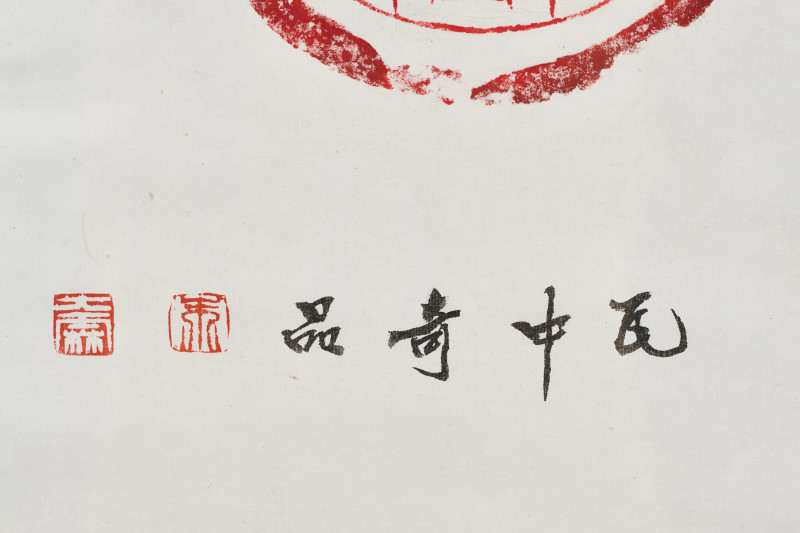 瓦中奇品